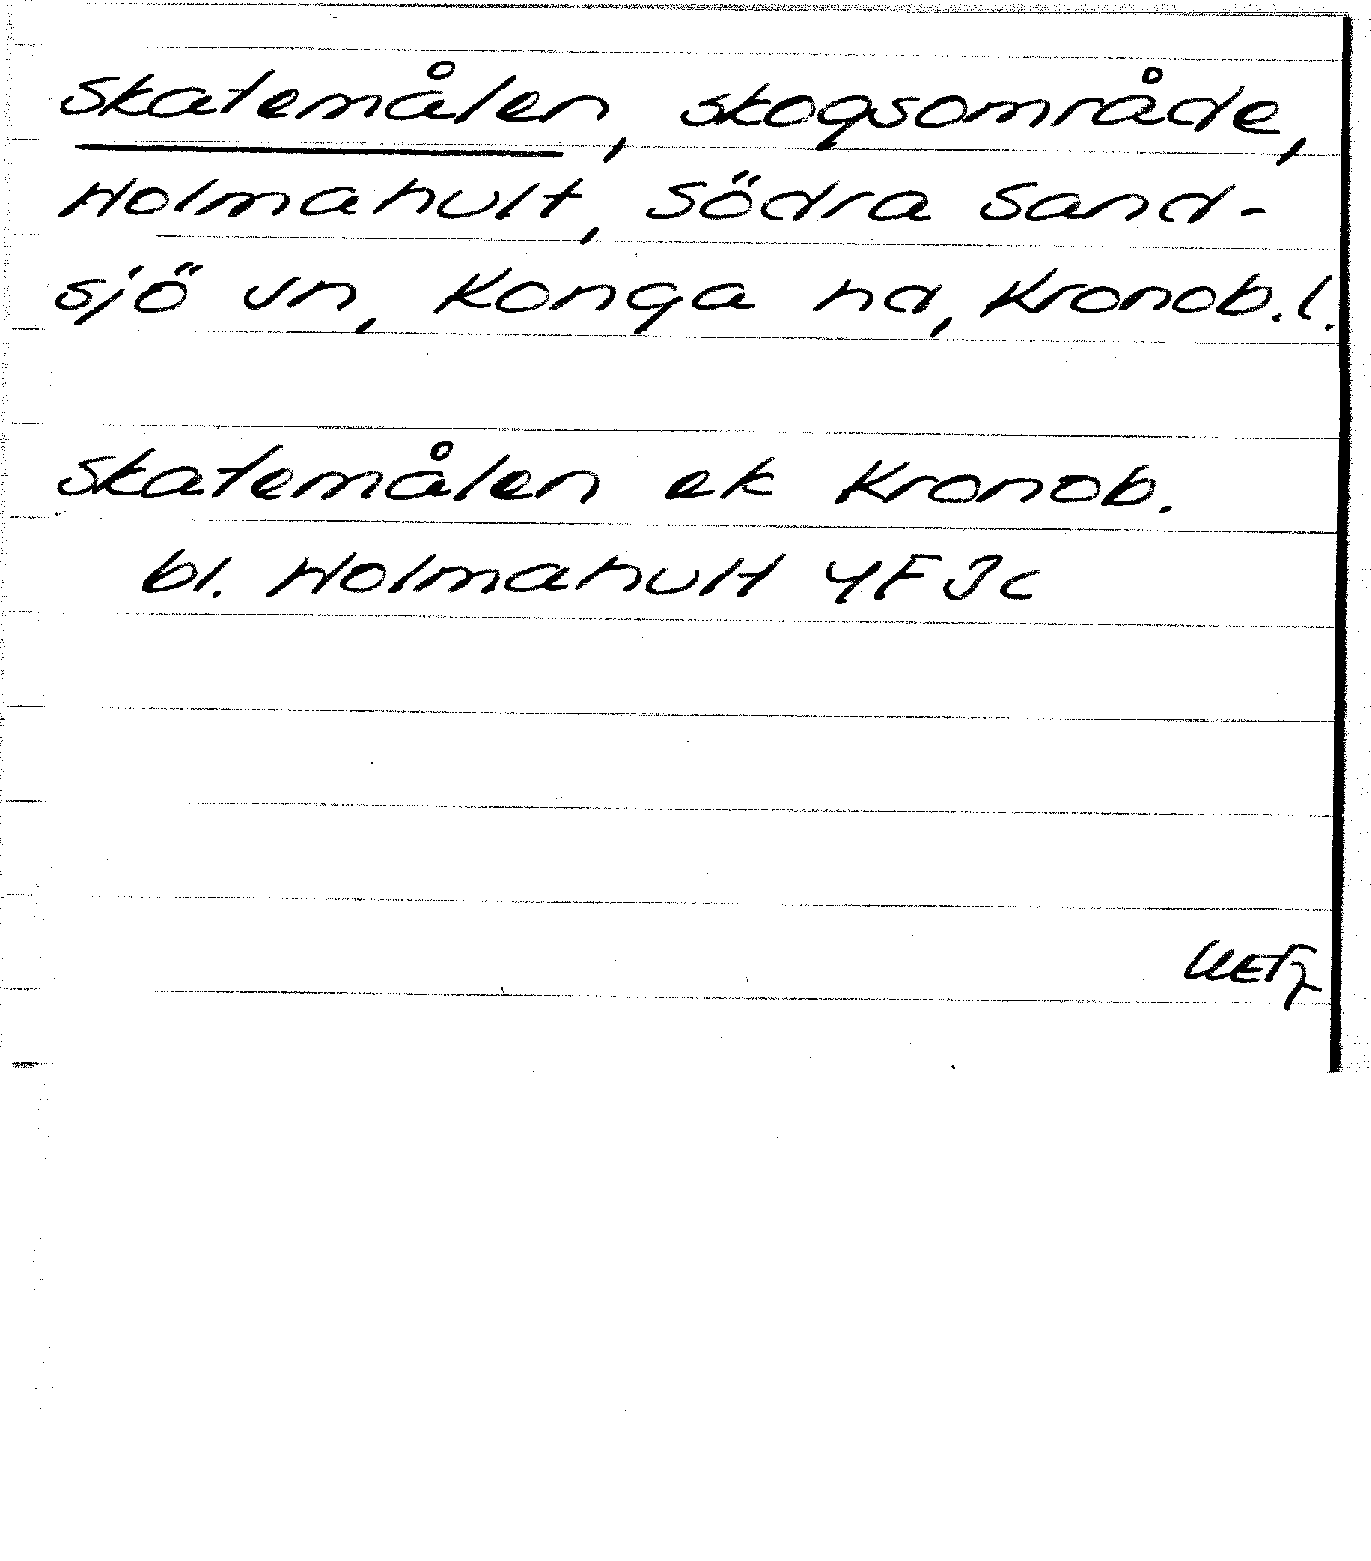 Skatemålen, skogsområde,
Holmahult, Södra Sand-
sjö sn, Konga hd, Kronob. l.
Skatemålen ek Kronob.
bl. Holmahult 4F3c